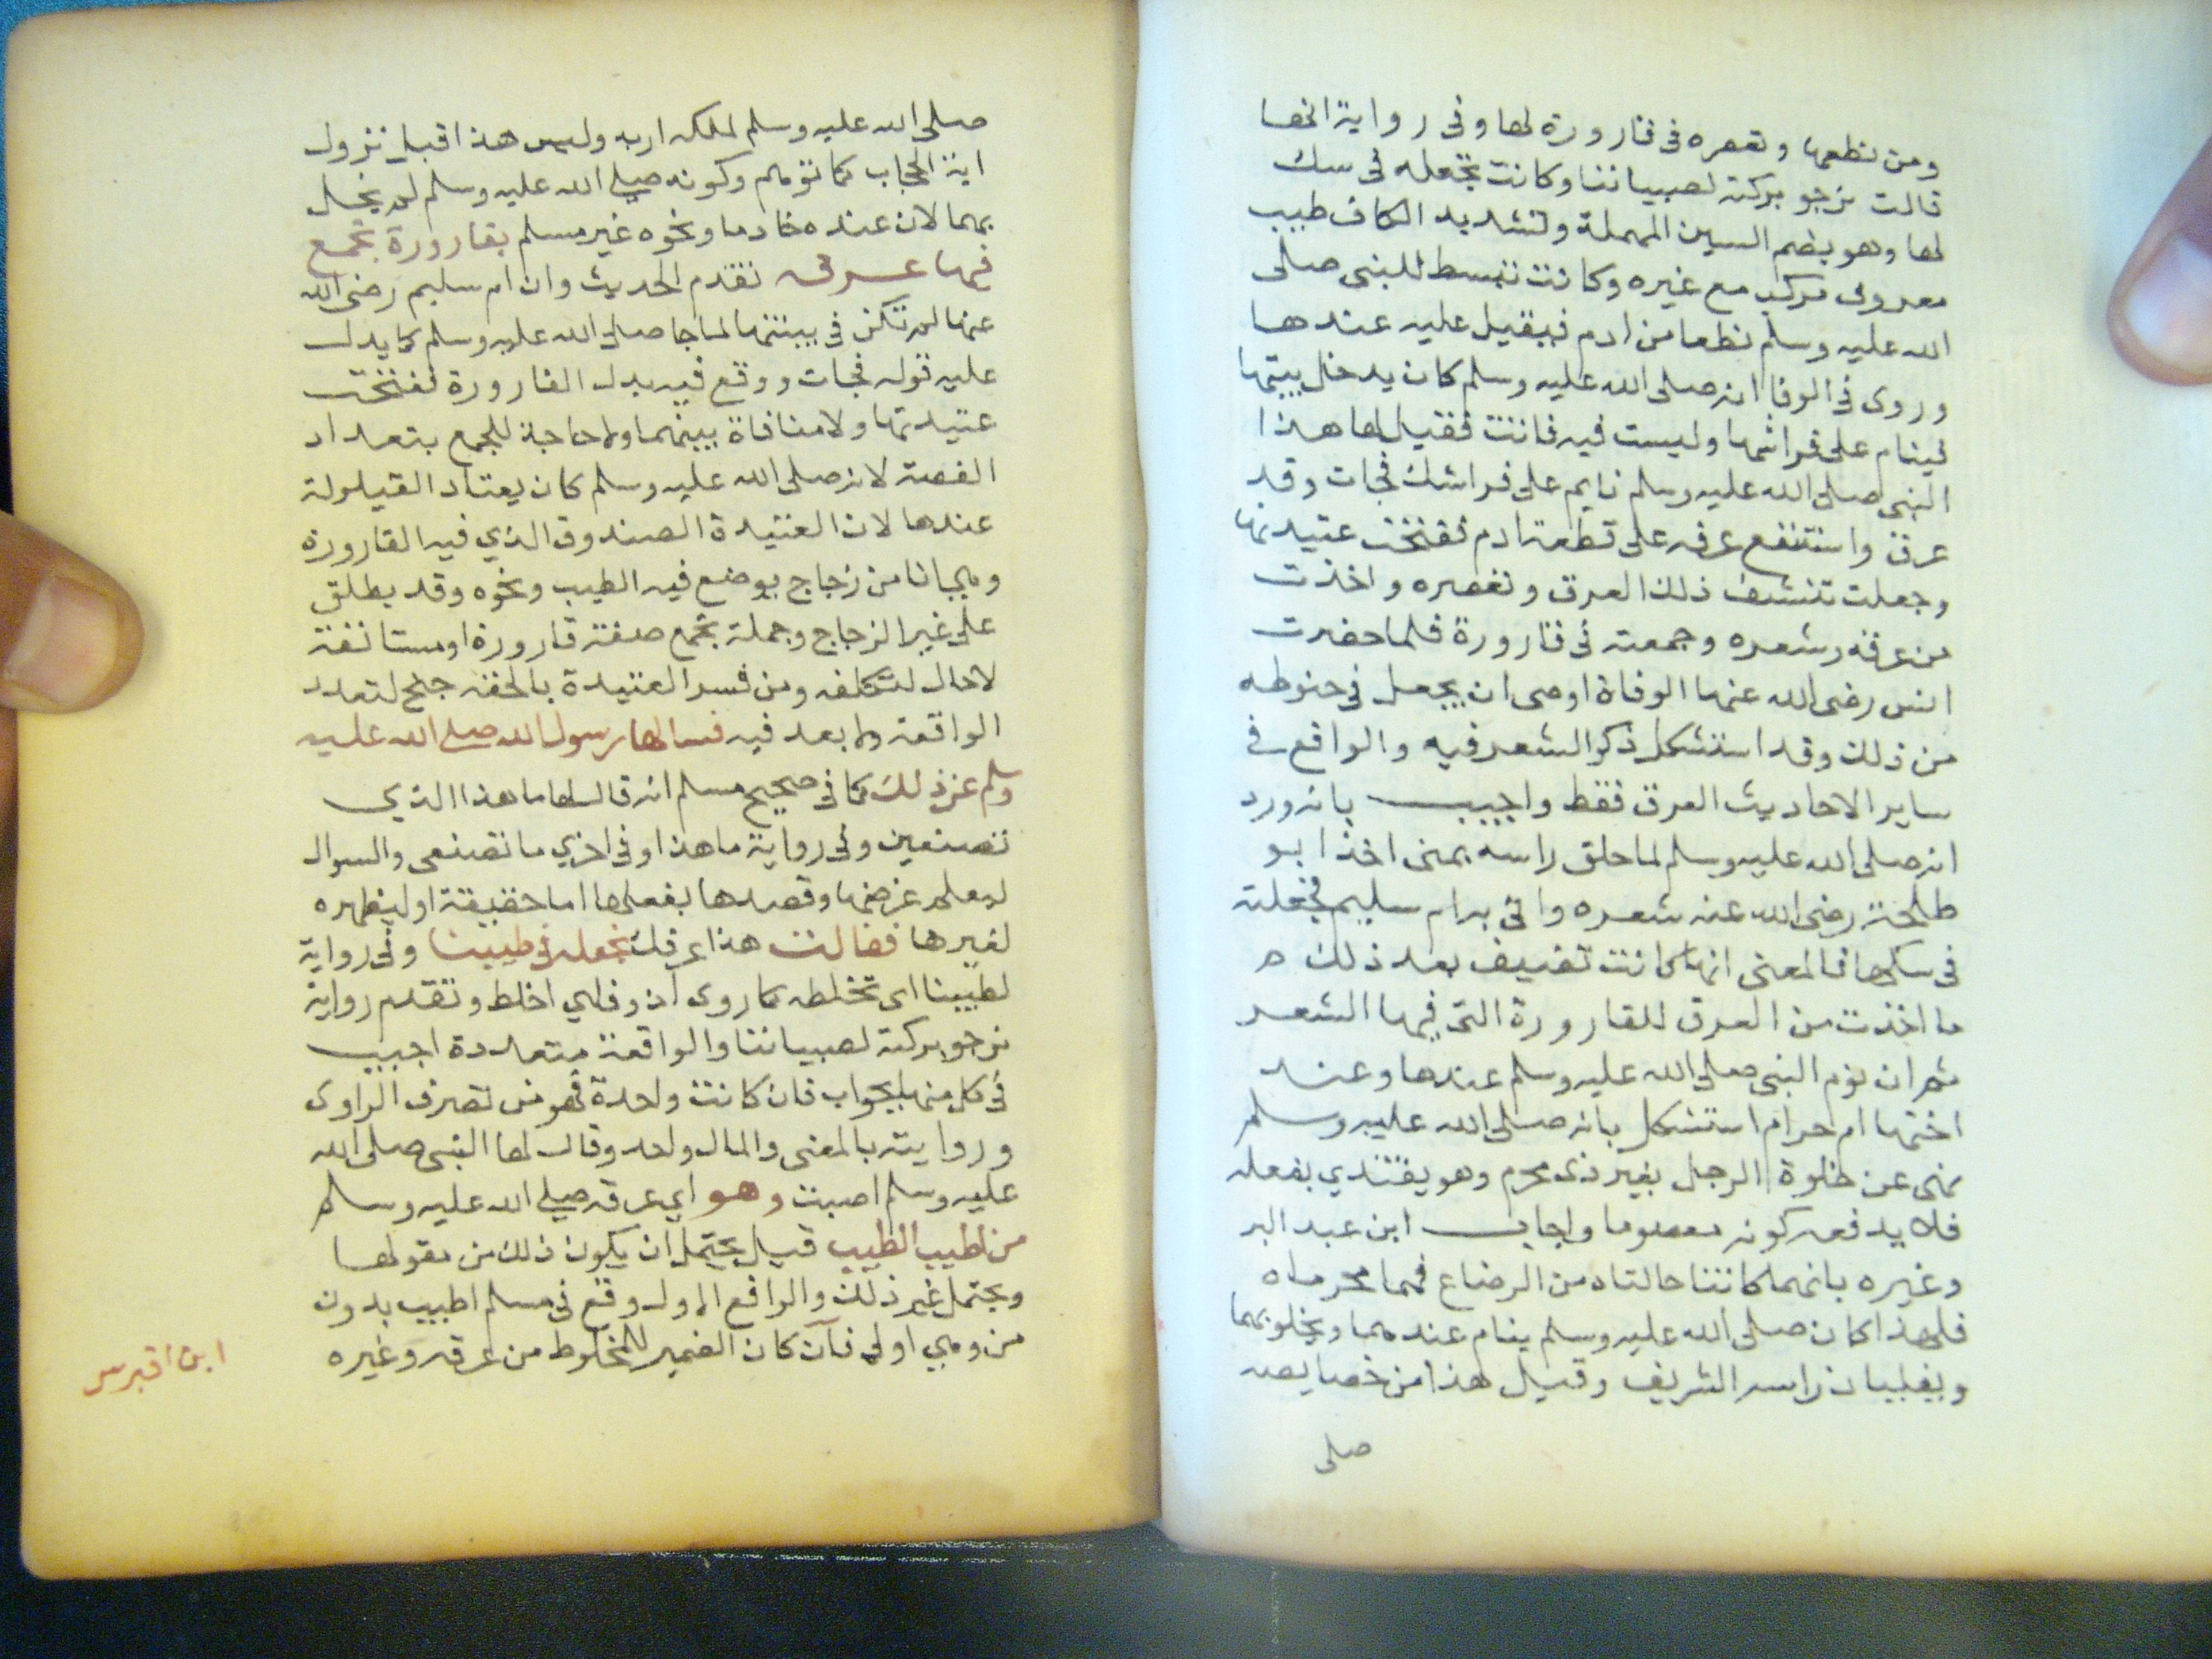 ومن نطعها وتعصره فى قارورة لها وفى رواية انها
قالت نرجو بركته لصبياننا وكانت تجعله فى سك
لها وهو بضم السين المهملة وتشديد الكاف طيب
معروف مركب مع غيره وكانت تبسط للنبى صلى
الله عليه وسلم نطعا من ادم فيقيل عليه عندها
وروى فى الوفا انه صلى الله عليه وسلم كان يدخل بيتها
فينام على فراشها وليست فيه فاتت فقيل لها هذا
النبى صلى الله عليه وسلم نايم على فراشك فجات وقد
عرق واستنقع عرقه على قطعة ادم ففتحت عتيدتها
وجعلت تنشف ذلك العرق وتعصره واخذت
من عرقه وشعره وجمعته فى قارورة فلما حضرت
انس رضى الله عنها الوفاة اوصى ان يجعل فى حنوطه
من ذلك وقد استشكل ذكر الشعر فيه والواقع فى
ساير الاحاديث العرق فقط واجيب بانه ورد
انه صلى الله عليه وسلم لما حلق راسه بمنى اخذ ابو
طلحة رضى الله عنه شعره واتى به ام سليم فجعلته
فى سكها فالمعنى انها كانت تضيف بعد ذلك
ما اخذت من العرق للقارورة التى فيها الشعر
ثم ان نوم النبى صلى الله عليه وسلم عندها وعند
اختها ام حرام استشكل بانه صلى الله عليه وسلم
نهى عن خلوة الرجل بغير ذى محرم وهو يقتدي بفعله
فلا يدفعه كونه معصوما واجاب ابن عبد البر
وغيره بانهما كانتا خالتاه من الرضاع فهما محرماه
فلهذا كان صلى الله عليه وسلم ينام عندهما ويخلو بهما
ويفليان راسه الشريف وقيل هذا من خصايصه
صلى
صلى الله عليه وسلم لملكه اربه وليس هذا قبل نزول
اية الحجاب كما توهم وكونه صلى الله عليه وسلم لم يخل
بهما لان عنده خادما ونحوه غير مسلم بقارورة تجمع
فيها عرقه تقدم الحديث وان ام سليم رضى الله
عنها لم تكن فى بيتها لما جا صلى الله عليه وسلم كما يدل
عليه قوله فجات ووقع فيه بدل القارورة ففتحت
عتيدتها ولا منافاة بينهما ولا حاجة للجمع بتعداد
القصة لانه صلى الله عليه وسلم كان يعتاد القيلولة
عندها لان العتيدة الصندوق الذي فيه القارورة
وهي انا من زجاج يوضع فيه الطيب ونحوه وقد يطلق
على غير الزجاج وجملة تجمع صفة قارورة او مستانفة
لا حال لتكلفه ومن فسر العتيدة بالحقة جنح لتعدد
الواقعة ولا بعد فيه فسالها رسول الله صلى الله عليه
وسلم عن ذلك كما فى صحيح مسلم انه قال لها ما هذا الذي
تصنعين وفى رواية ما هذا وفى اخري ما تصنعى والسوال
ليعلم غرضها وقصدها بفعلها اما حقيقة او ليظهره
لغيرها فقالت هذا عرقك نجعله فى طيبنا وفى رواية
لطيبنا اى تخلطه كما روى اذوف اي اخلط وتقدم رواية
نرجو بركته لصبياننا والواقعة متعددة اجيب
فى كل منها بجواب فان كانت واحدة فهو من تصرف الراوى
وروايته بالمعنى والمال واحد وقال لها النبى صلى الله
عليه وسلم اصبت وهو اي عرقه صلى الله عليه وسلم
من اطيب الطيب قيل يحتمل ان يكون ذلك من مقولها
ويحتمل غير ذلك والواقع الاول وقع فى مسلم اطيب بدون
من وهي اولى فان كان الضمير للمخلوط من عرقه وغيره
ابن اقبرس